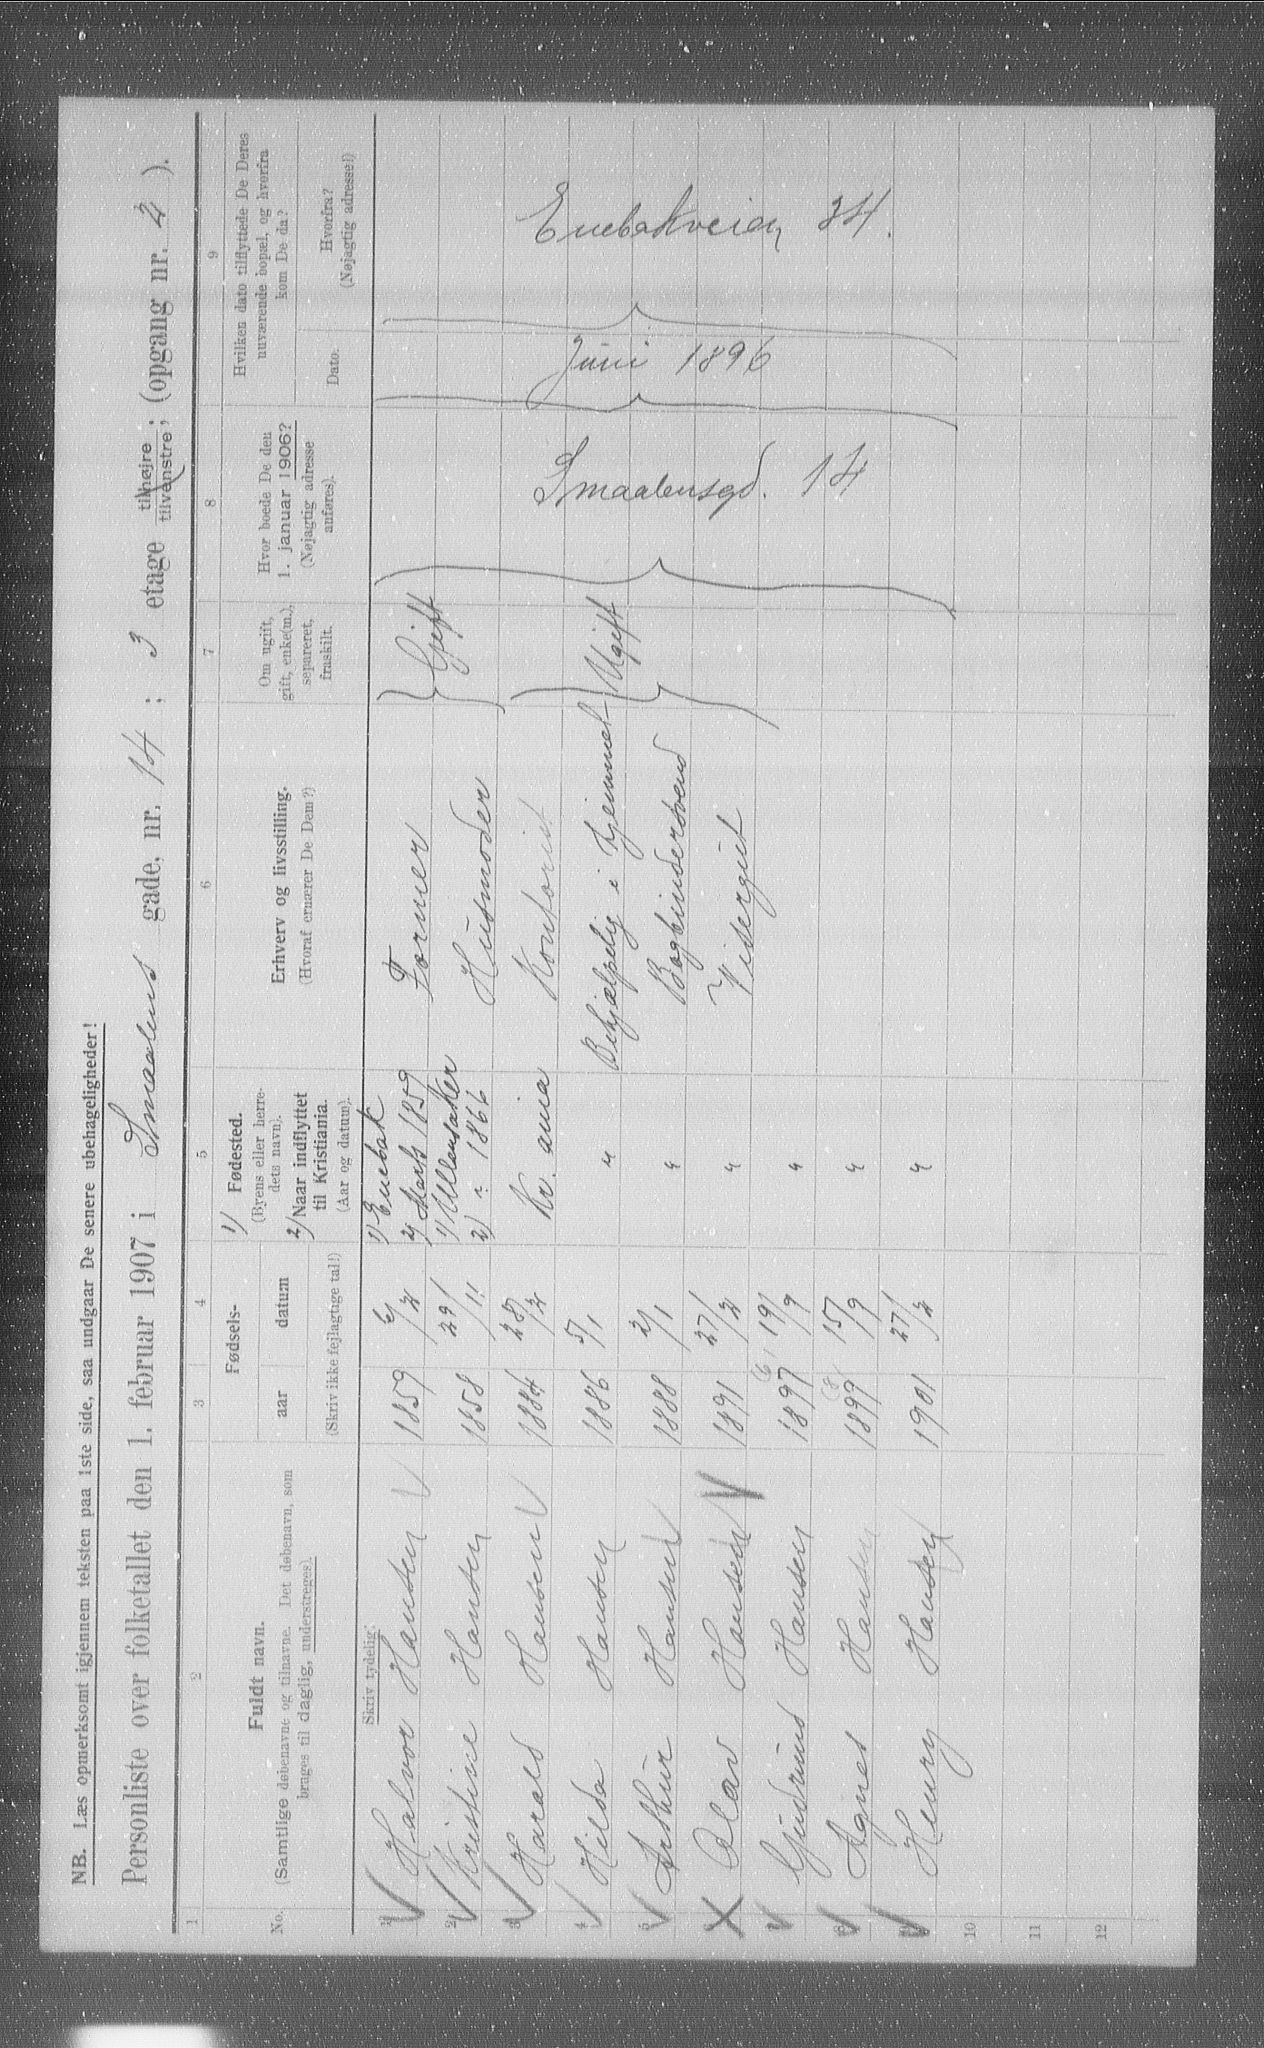 NB. Læs opmerksomt igjennem teksten paa 1ste side, saa undgaar De senere ubehageligheder!
Personliste over folketallet den 1. februar 1907 i Smaalens gade, nr. 14; 3 etage tilhøjre tilvenstre; (opgang nr. 2).
1 2 3 4 5 6 7 8 9
No. Fuldt navn. (Samtlige døbenavne og tilnavne. Det døbenavn, som bruges til daglig, understreges).
Skriv tydelig:
Fødsels- aar datum (Skriv ikke fejlagtige tal!)
1) Fødested. (Byens eller herredets navn). 2) Naar indflyttet til Kristiania. (Aar og datum).
Erhverv og livsstilling. (Hvoraf ernærer De Dem?)
Om ugift, gift, enke(m.), separeret, fraskilt.
Hvor boede De den 1. januar 1906? (Nøjagtig adresse anføres).
Hvilken dato tilflyttede De Deres nuværende bopæl, og hvorfra kom De da?
Dato. Hvorfra? (Nøjagtig adresse!)
1 Halvor Hansen 1859 6/2 1) Enebak 2) Marts 1859 Former
2 Kristine Hansen 1858 22/11 1) Ullensaker 2) " 1866 Husmoder Gift
3 Harald Hansen 1884 28/2 Kr.ania Kontorist
4 Hilda Hansen 1886 5/1 " Behjælpelig i hjemmet Ugift
5 Arthur Hansen 1888 2/1 " Bogbindersvend
6 Olav Hansen 1891 27/2 " Visergut
7 Gudrun Hansen 1897 (6) 19/9 "
8 Agnes Hansen 1899 (8) 15/9 "
9 Henry Hansen 1901 27/2 "
10
11
12
Smaalensgd. 14
Juni 1896
Enebakveien 34.